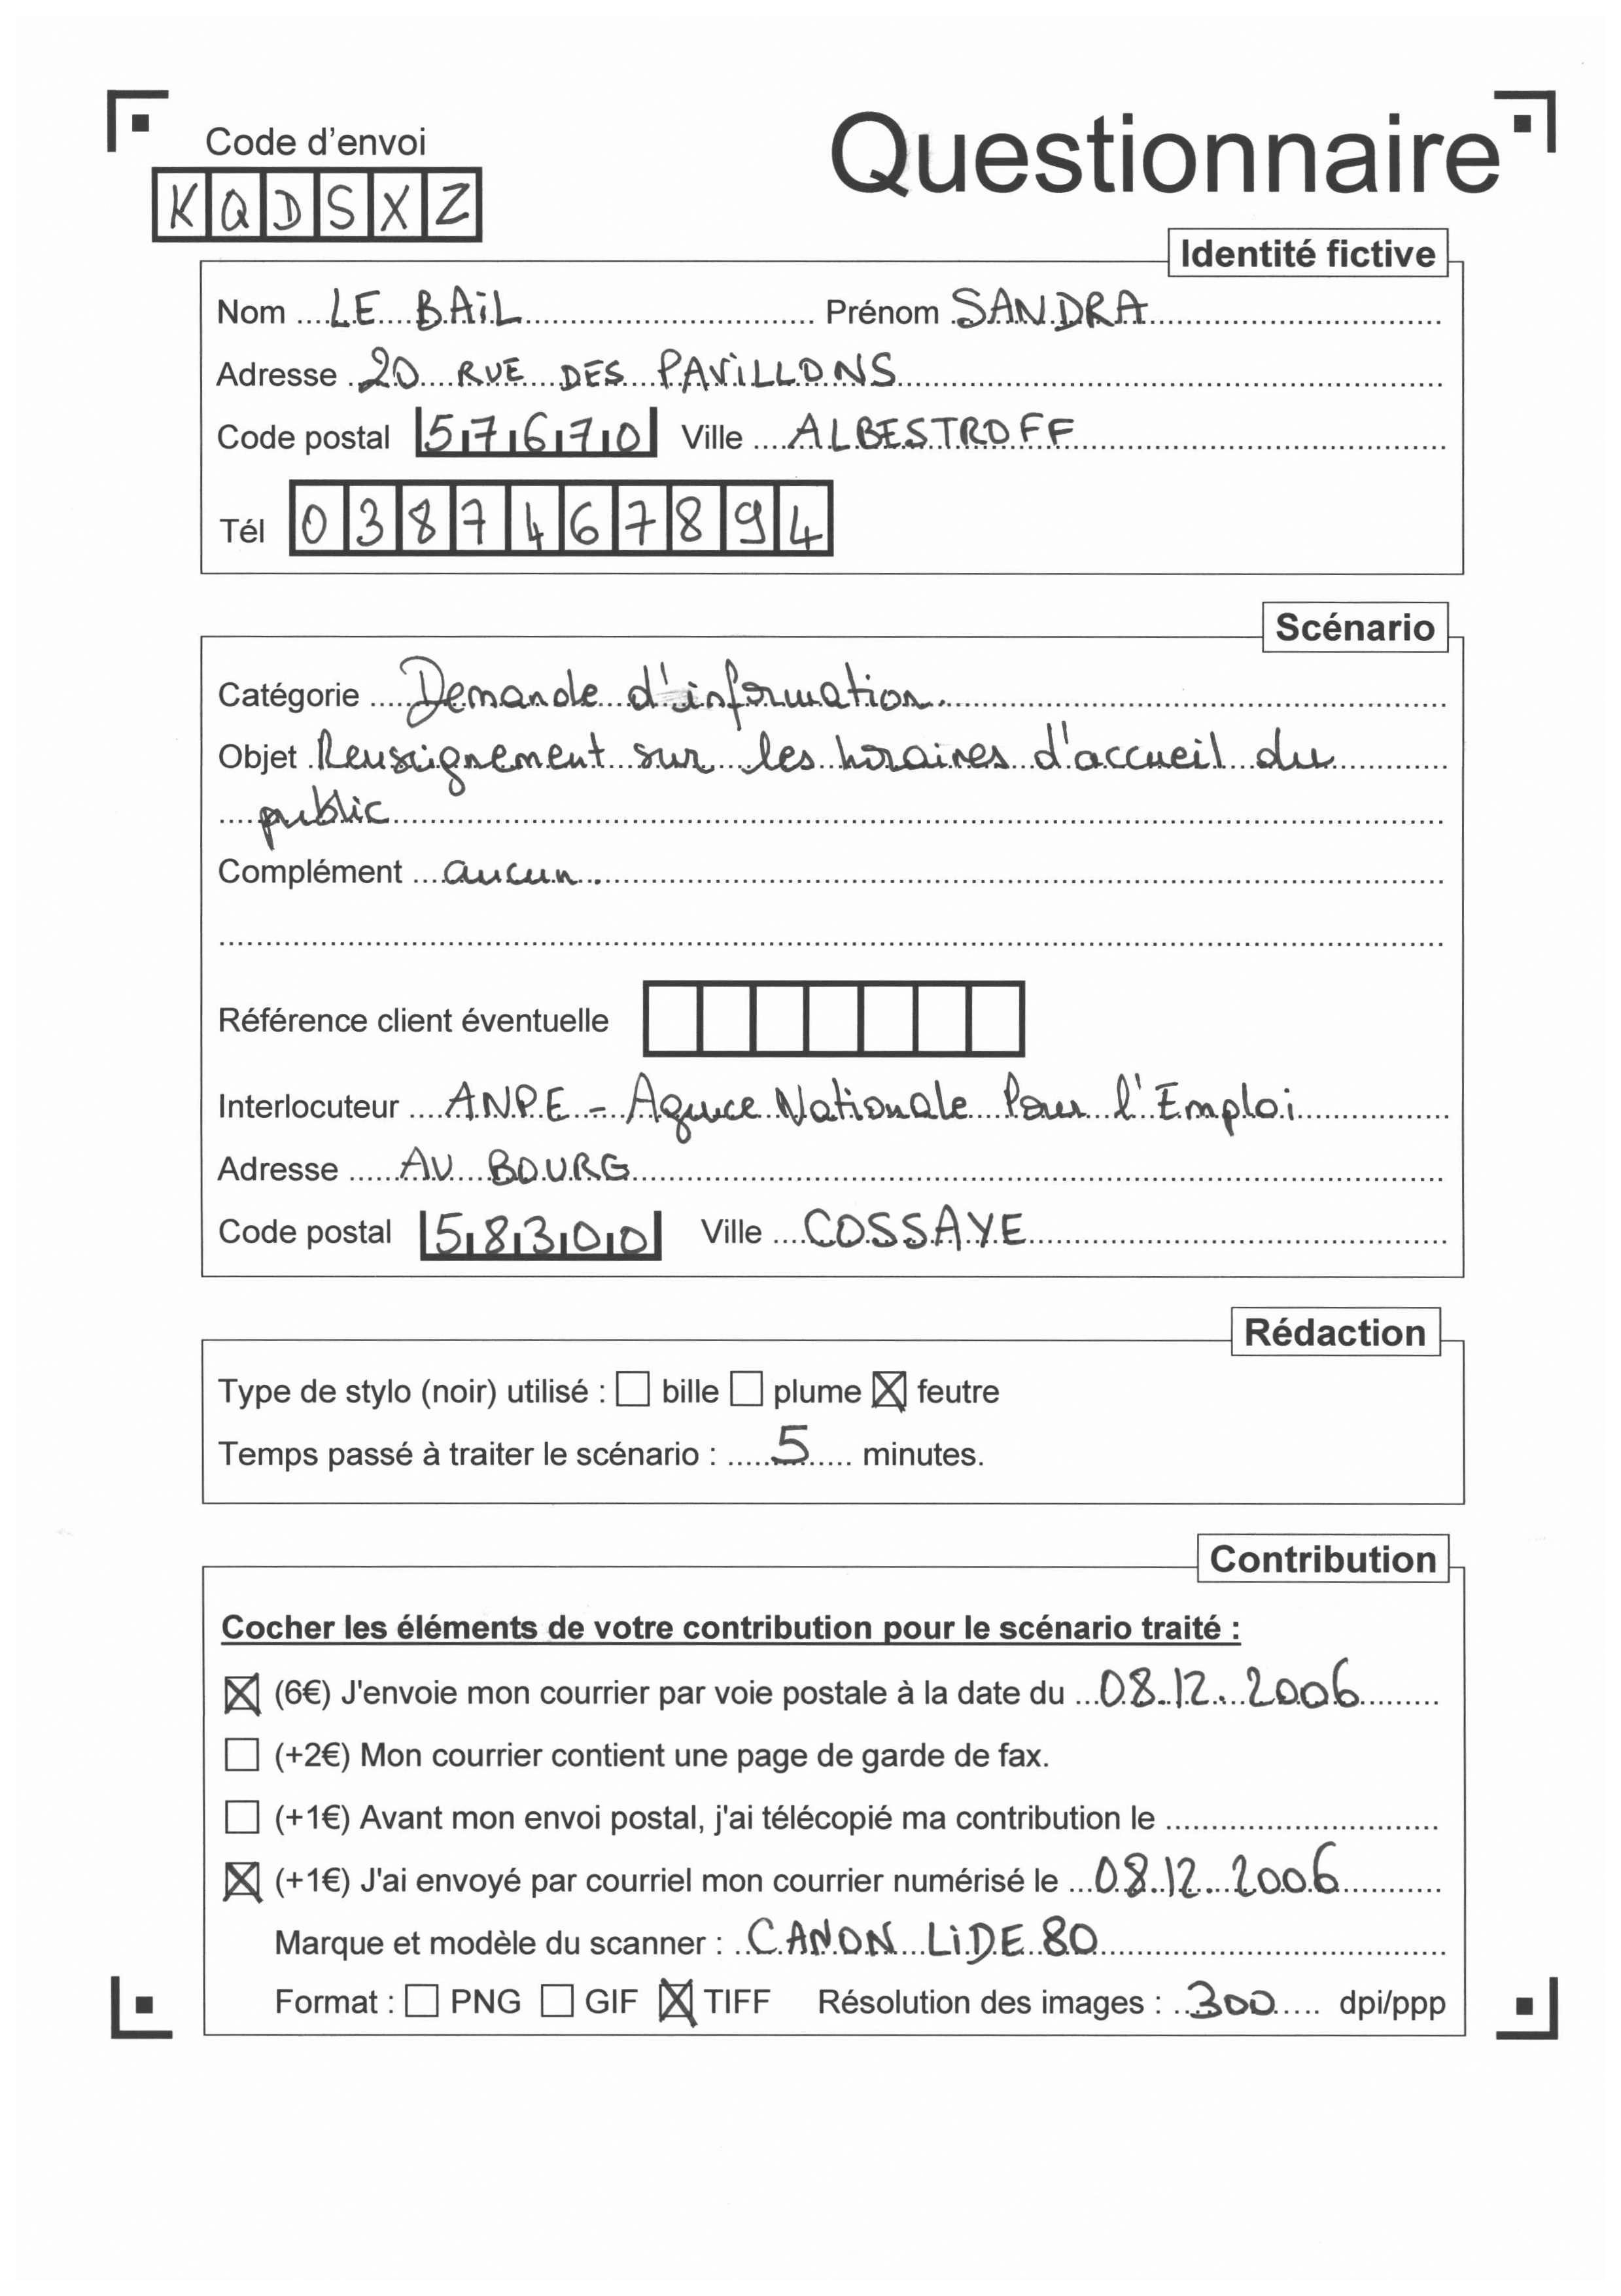 Code d'envoi
Questionnaire
KQDSXZ
Identité fictive
Nom LE BAIL Prénom SANDRA
Adresse 20 RUE DES PAVILLONS
Code postal 57670 Ville ALBESTROFF
Tél 0387467894
Scénario
Catégorie Demande d'information.
Objet Renseignement sur les horaires d'accueil du
public
Complément aucun.
Référence client éventuelle
Interlocuteur ANPE - Agence Nationale Pour l'Emploi
Adresse AU BOURG
Code postal 58300 Ville COSSAYE
Rédaction
Type de stylo (noir) utilisé : ☐ bille ☐ plume ☒ feutre
Temps passé à traiter le scénario : 5 minutes.
Contribution
Cocher les éléments de votre contribution pour le scénario traité :
☒ (6€) J'envoie mon courrier par voie postale à la date du 08.12.2006
☐ (+2€) Mon courrier contient une page de garde de fax.
☐ (+1€) Avant mon envoi postal, j'ai télécopié ma contribution le
☒ (+1€) J'ai envoyé par courriel mon courrier numérisé le 08.12.2006
Marque et modèle du scanner : CANON LIDE 80
Format : ☐ PNG ☐ GIF ☒ TIFF Résolution des images : 300 dpi/ppp